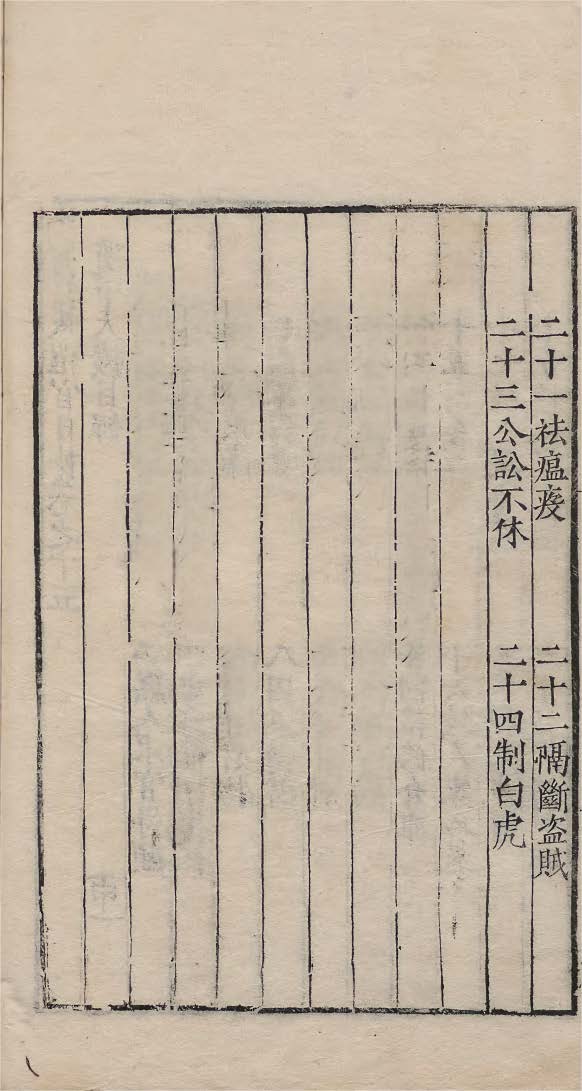 二十一祛瘟疫　二十二隔斷盗賊
二十三公訟不休　二十四制白虎